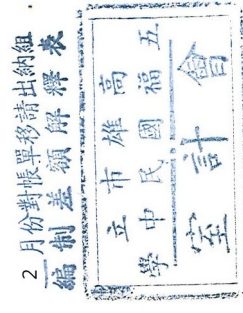 2月份對帳單移請出納組
編制差額解釋表
高雄市立
五福國民中學
會計室